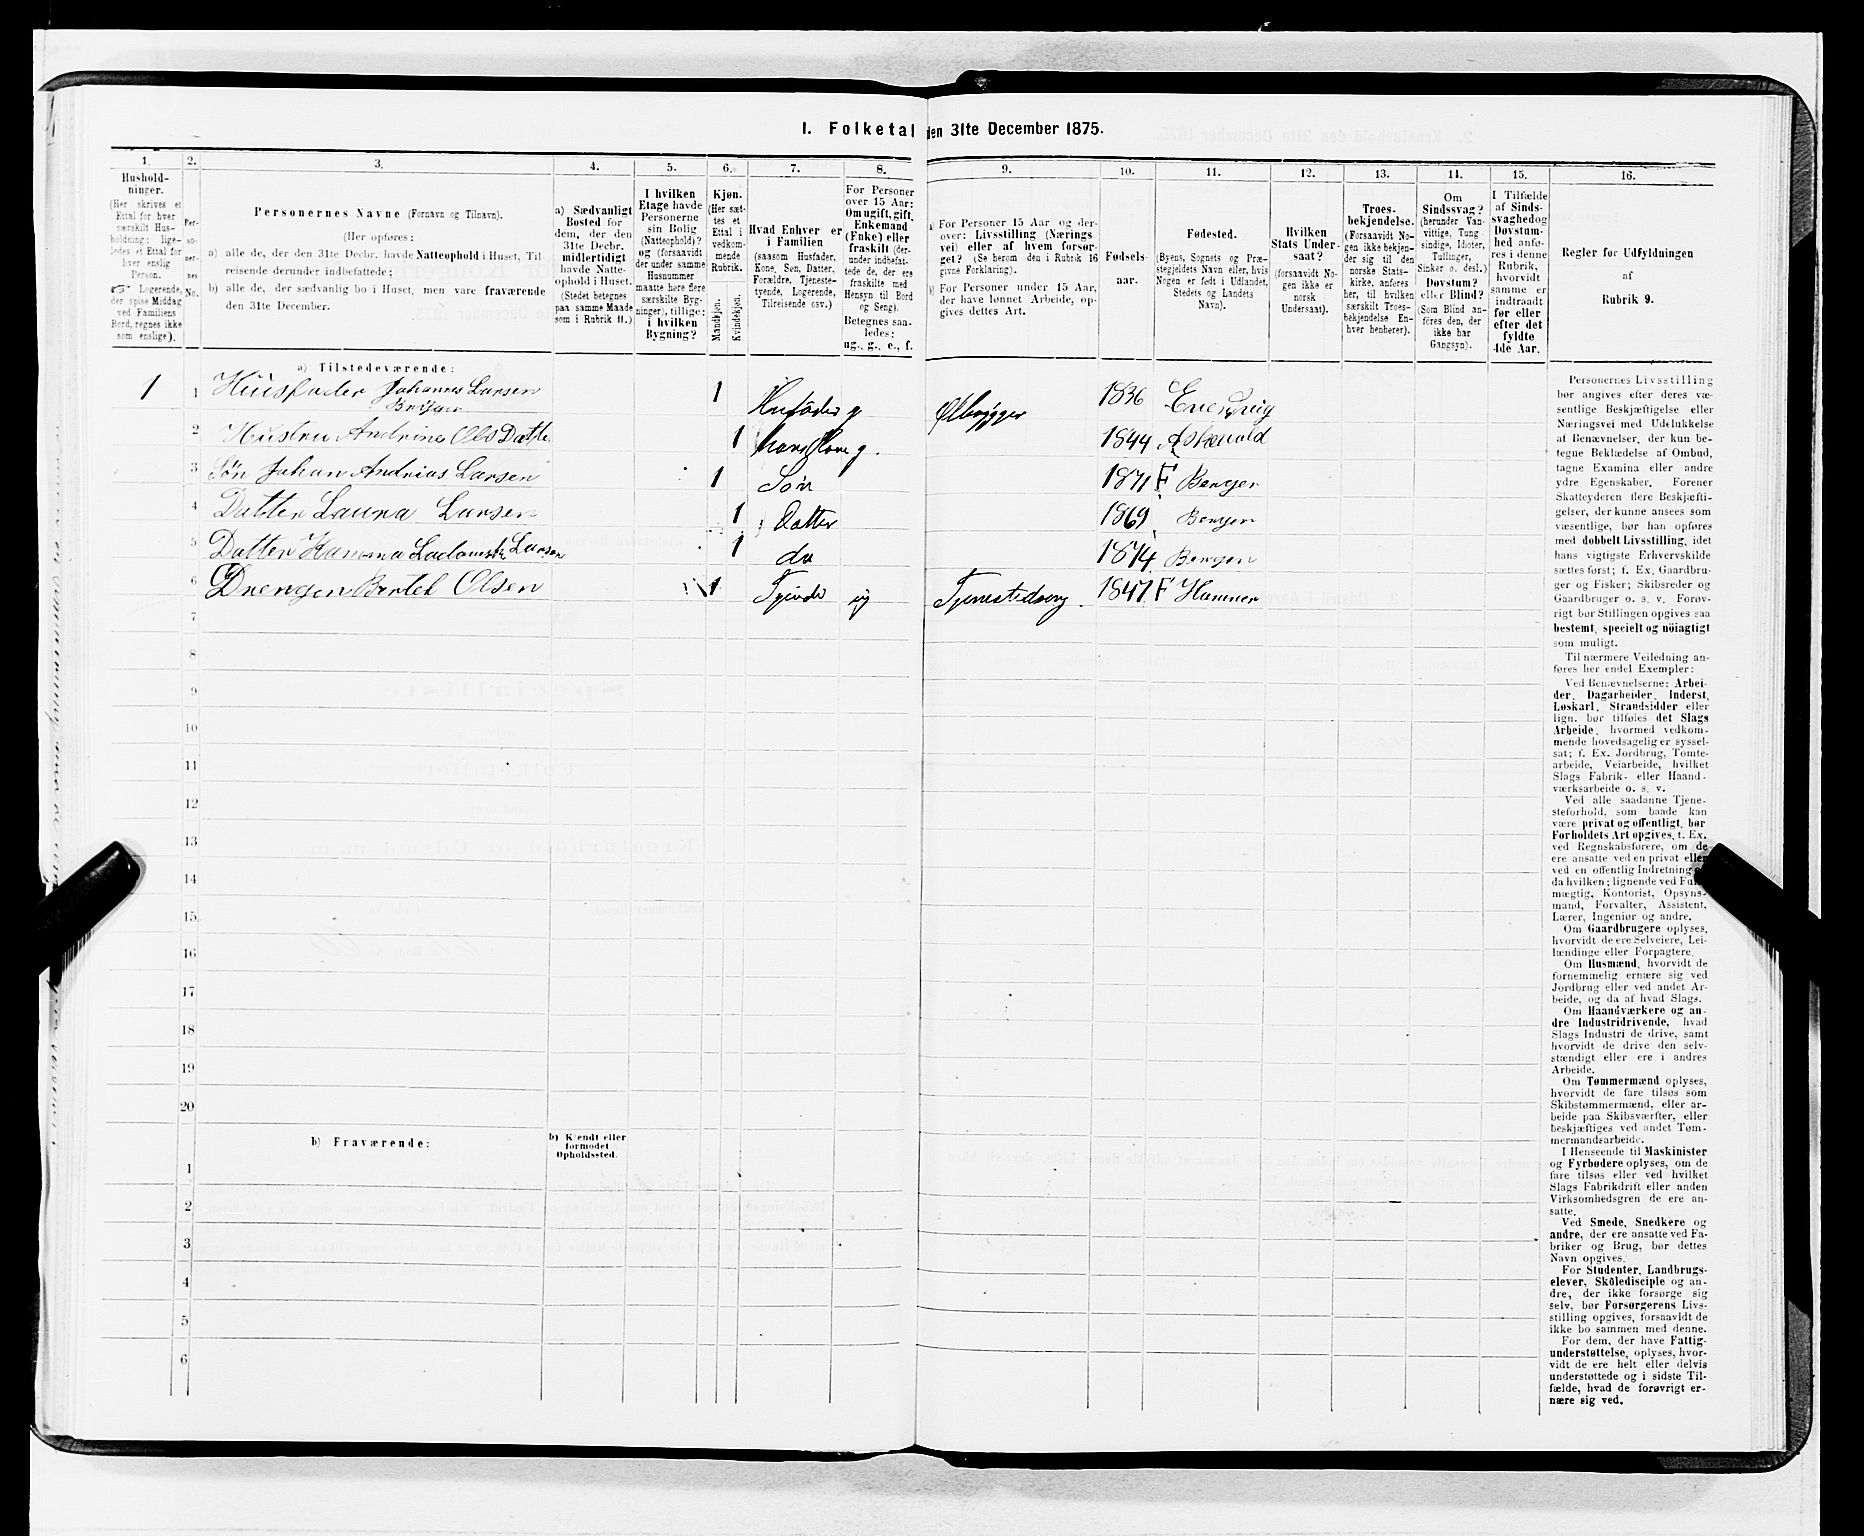 1. Folketal den 31te December 1875.
1.
2.
3.
4.
5.
6.
7.
8.
9.
10.
11.
12.
13.
14.
15.
16.
Hushold-
ninger.
(Her skrives et
Ettal for hver
særskilt Hus-
holdning; lige-
ledes et Ettal for
hver enslig
Person.
☞ Logerende,
der spise Middag
ved Familiens
Bord, regnes ikke
som enslige).
Per-
so-
ner-
nes
No.
Personernes Navne (Fornavn og Tilnavn).
(Her opføres:
a) alle de, der den 31te Decbr. havde Natteophold i Huset, Til-
reisende derunder indbefattede;
b) alle de, der sædvanlig bo i Huset, men vare fraværende
den 31te December.
a) Sædvanligt
Bosted for
dem, der den
31te Decbr.
midlertidigt
havde Natte-
ophold i Huset.
(Stedet betegnes
paa samme Maade
som i Rubrik 11.)
I hvilken
Etage havde
Personerne
sin Bolig
(Natteophold)?
og (forsaavidt
der under samme
Husnummer
maatte høre flere
særskilte Byg-
ninger), tillige:
i hvilken
Bygning?
Kjøn.
(Her sæt-
tes et
Ettal i
vedkom-
mende
Rubrik.
Mandkjøn.
Kvindekjøn.
Hvad Enhver er
i Familien
(saasom Husfader,
Kone, Søn, Datter,
Forældre, Tjeneste-
tyende, Logerende,
Tilreisende osv.)
For Personer
over 15 Aar:
Om ugift, gift,
Enkemand
(Enke) eller
fraskilt (der-
under indbefat-
tede de, der ere
fraskilte med
Hensyn til Bord
og Seng).
Betegnes saa-
ledes:
ug., g., e., f.
a) For Personer 15 Aar og der-
over: Livsstilling (Nærings
vei) eller af hvem forsør-
get? (Se herom den i Rubrik 16
givne Forklaring).
b) For Personer under 15 Aar,
der have lønnet Arbeide, op-
gives dettes Art.
Fødsels-
aar.
Fødested.
(Byens, Sognets og Præ-
stegjeldets Navn eller, hvis
Nogen er født i Udlandet,
Stedets og Landets
Navn).
Hvilken
Stats Under-
saat?
(forsaavidt No-
gen ikke er
norsk
Undersaat).
Troes-
bekjendelse.
(Forsaavidt No-
gen ikke bekjen-
der sig til den
norske Stats-
kirke, anføres
her, til hvilken
særskilt Troes-
bekjendelse En-
hver henhører).
Om
Sindssvag?
(herunder Van-
vittige, Tung
sindige, Idioter,
Tullinger,
Sinker o. desl.)
Døvstum?
eller Blind?
(Som Blind an-
føres den, der
ikke har
Gangsyn).
I Tilfælde
af Sinds-
svaghed og
Døvstum-
hed anfø-
res i denne
Rubrik,
hvorvidt
samme er
indtraadt
før eller
efter det
fyldte
4de Aar.
Regler før Udfyldningen
af
Rubrik 9.
a) Tilstedeværende:
1 1 Huusfader Johannes Larsen 1 Husfader g Ølbrygger 1836
2 Hustru Andrine Ols Datter 1 Kone g. 1844
3 Søn Johan Andrias Larsen 1 Søn 1871 F Bergen
4 Datter Laura Larsen 1 Datter 1869 Bergen
5 Datter Hanna Larsen 1 do 1874 Bergen
6 Drengen Bertel Olsen 1 Tjende ug Tjenestedreng. 1847 F Hammer
7
8
9
10
11
12
13
14
15
16
17
18
19
20
b) Fraværende:
b) Kjendt eller
formodet
Opholdssted.
1
2
3
4
5
6
Personernes Livsstilling
bør angives efter deres væ-
sentlige Beskjæftigelse eller
Næringsvei med Udelukkelse
af Benævnelser, der kun be-
tegne Beklædelse af Ombud,
tagne Examina eller andre
ydre Egenskaber. Forener
Skatteyderen flere Beskjæfti-
gelser, der kunne ansees som
væsentlige, bør han opføres
med dobbelt Livsstilling, idet
hans vigtigste Erhvervskilde
sættes først; f. Ex. Gaardbru-
ger og Fisker; Skibsreder og
Gaardbruger o. s. v. Forøv-
rigt bør Stillingen opgives saa
bestemt, specielt og nöiagtigt
som muligt.
Til nærmere Veiledning an-
føres her endel Exempler:
Ved Benævnelserne: Arbei-
der, Dagarbeider, Inderst,
Løskarl, Strandsidder eller
lign. bør tilføies det Slags
Arbeide, hvormed vedkom-
mende hovedsagelig er syssel-
sat; f. Ex. Jordbrug, Tomte-
arbeide, Veiarbeide, hvilket
Slags Fabrik- eller Haand-
værksarbeide o. s. v.
Ved alle saadanne Tjene-
steforhold, som baade kan
være privat og offentligt, bør
Forholdets Art opgives, t. Ex.
ved Regnskabsførere, om de
ere ansatte ved en privat eller
ved en offentlig Indretning
da hvilken; lignende ved Ful-
mægtig, Kontorist, Opsyns-
mand, Forvalter, Assistent,
Lærer, Ingeniør og andre.
Om Gaardbrugere oplyses,
hvorvidt de ere Selveiere, Lei-
lændinge eller Forpagtere.
Om Husmænd, hvorvidt de
fornemmelig ernære sig ved
Jordbrug eller ved andet Ar-
beide, og da af hvad Slags.
Om Haandværkere og an-
dre Industridrivende, hvad
Slags Industri de drive, samt
hvorvidt de drive den selv-
stændigt eller ere i andres
Arbeide.
Om Tømmermænd oplyses,
hvorvidt de fare tilsøs som
Skibstømmermænd, eller ar-
beide paa Skibsværfter, eller
beskjæftiges ved andet Tøm-
mermandsarbeide.
I Henseende til Maskinister
og Fyrbødere oplyses, om de
fare tilsøs eller ved hvilket
Slags Fabrikdrift eller anden
Virksomhedsgren de ere an-
satte.
Ved Smede, Snedkere og
andre, der ere ansatte ved Fa-
briker og Brug, bør dettes
Navn opgives.
For Studenter, Landbrugs-
elever, Skoledisciple og an-
dre, der ikke forsørge sig
selv, bør Forsørgerens Livs-
stilling opgives, forsaavidt de
ikke bo sammen med denne.
For dem, der have Fattig-
understøttelse, oplyses, hvor-
vidt de ere helt eller delvis
understøttede og i sidste Til-
fælde, hvad de forøvrigt er-
nære sig ved.